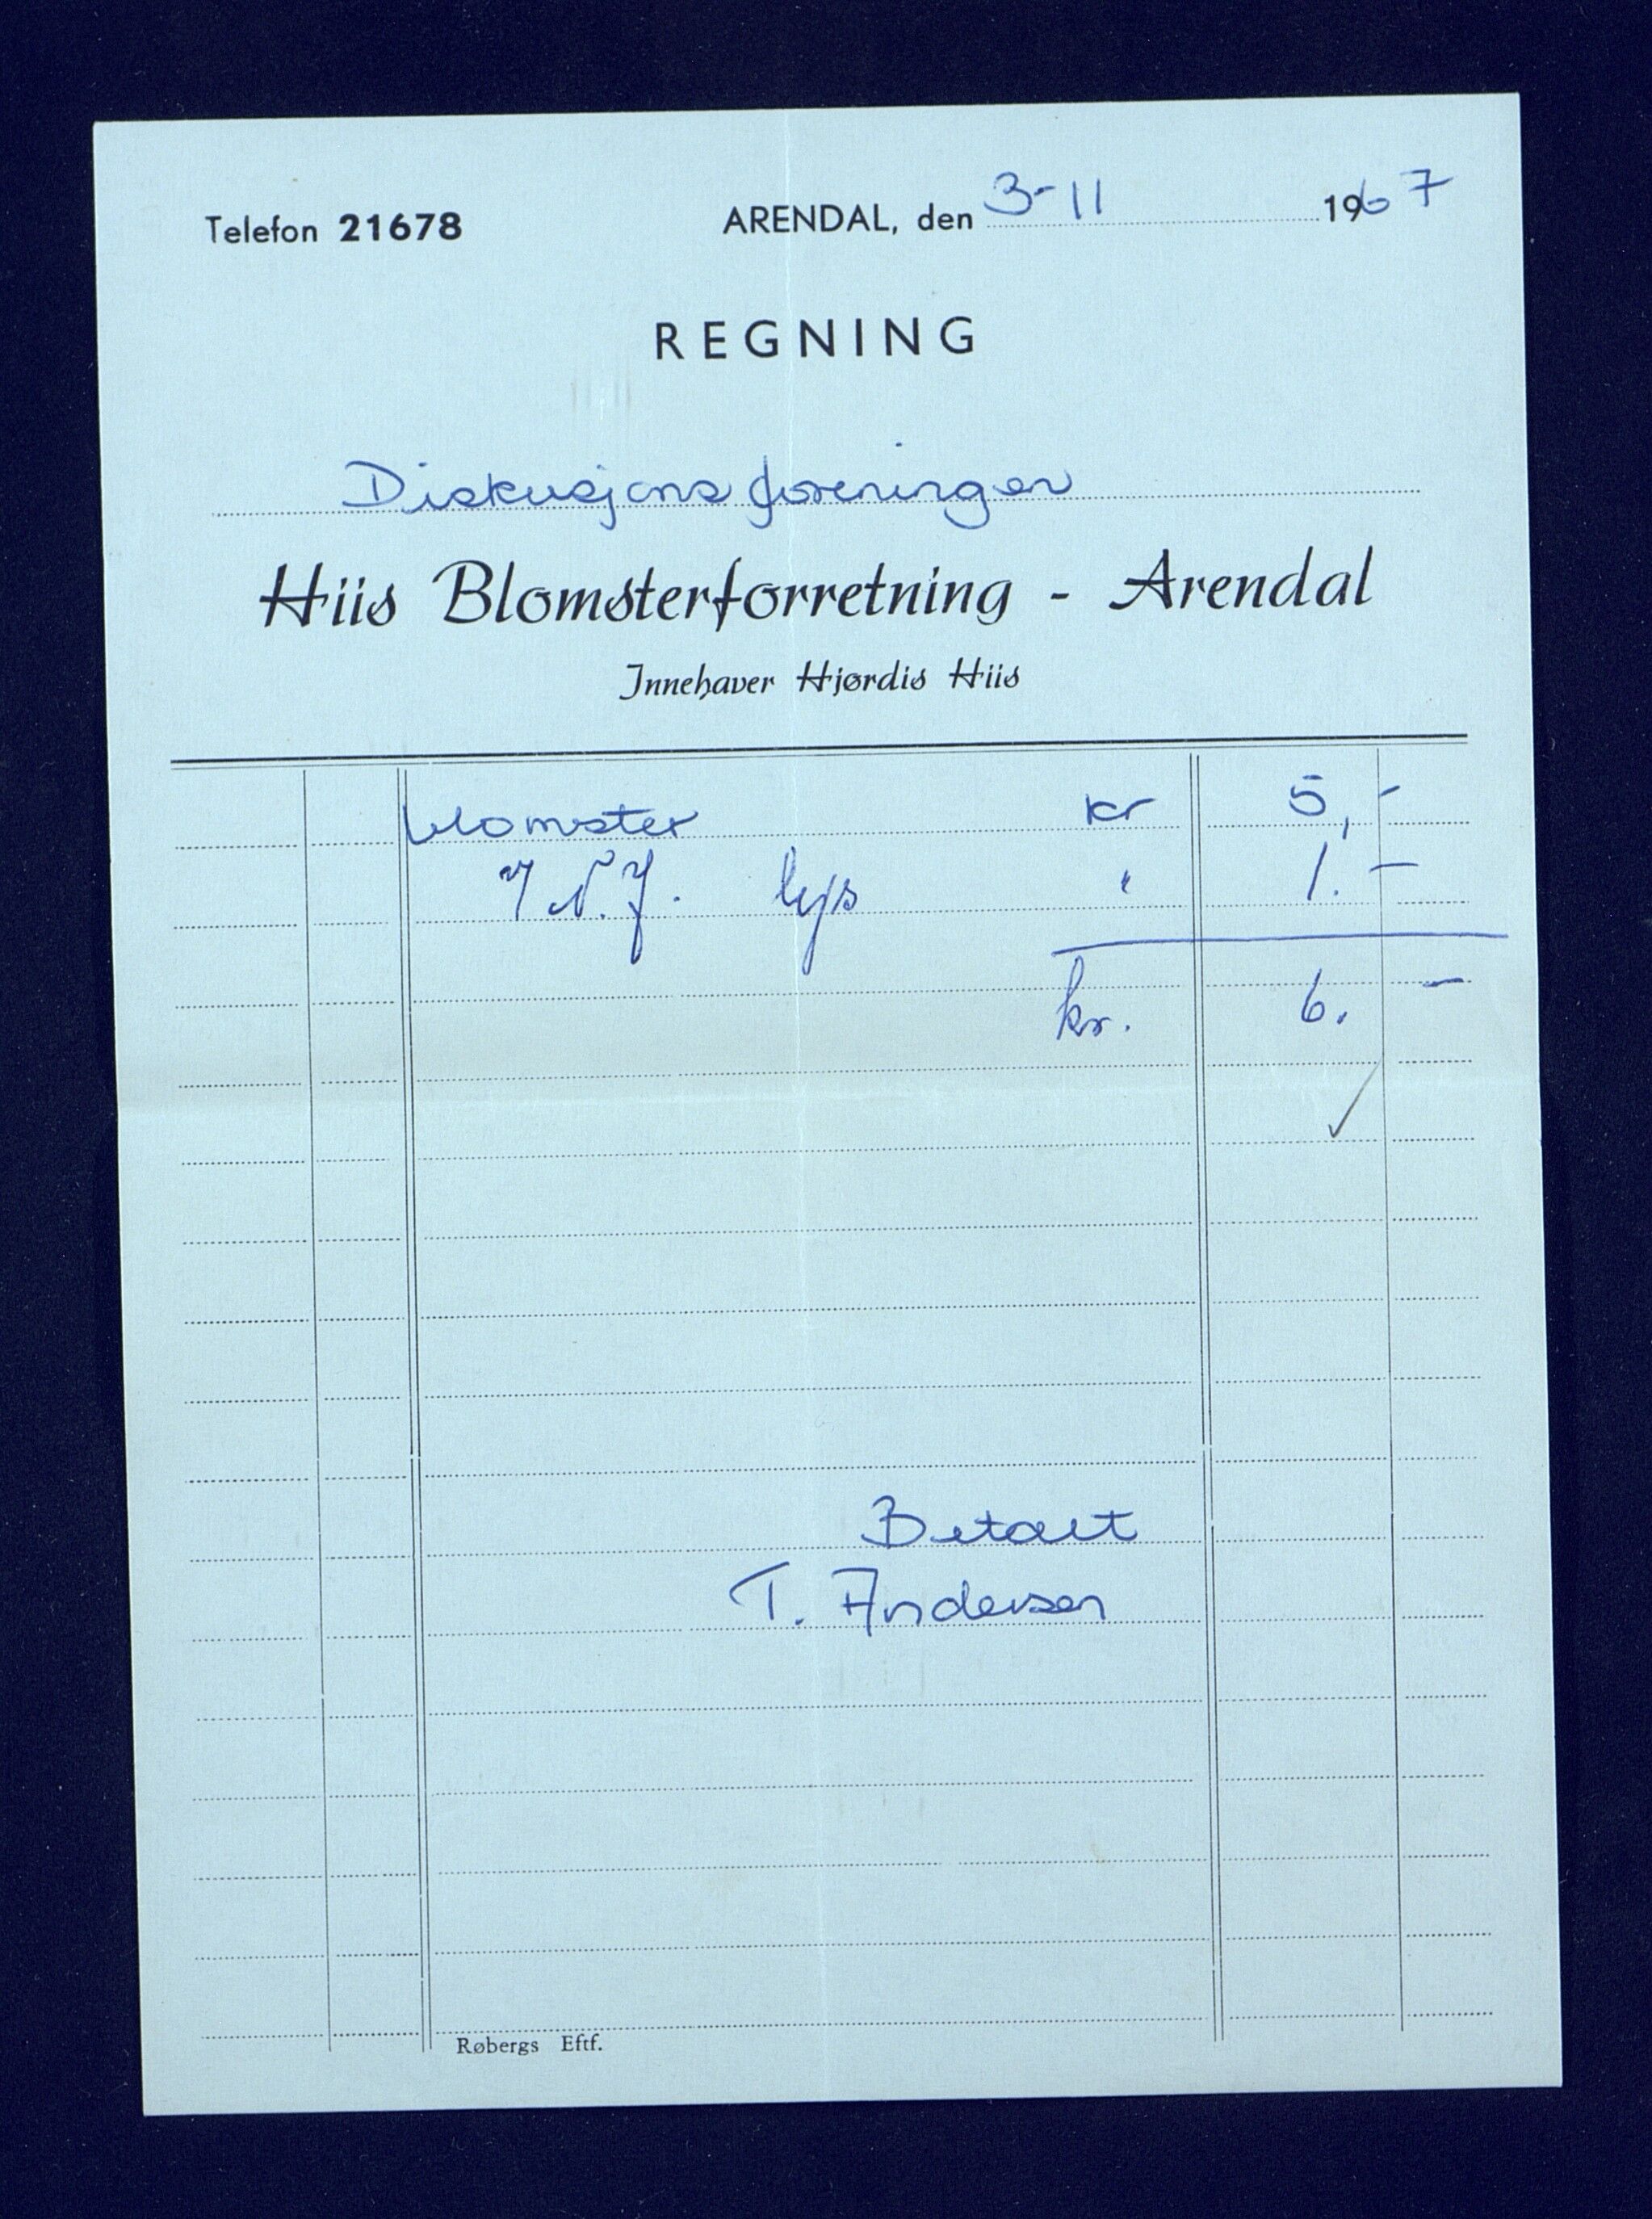 Telefon 21678 ARENDAL, den 3-11 1967
REGNING
Diskusjonsforeningen
Hiis Blomsterforretning - Arendal
Innehaver Hjørdis Hiis
blomster kr 5,-
lys " 1.-
kr. 6.-
Betalt
T. Andersen
Røbergs Eftf.